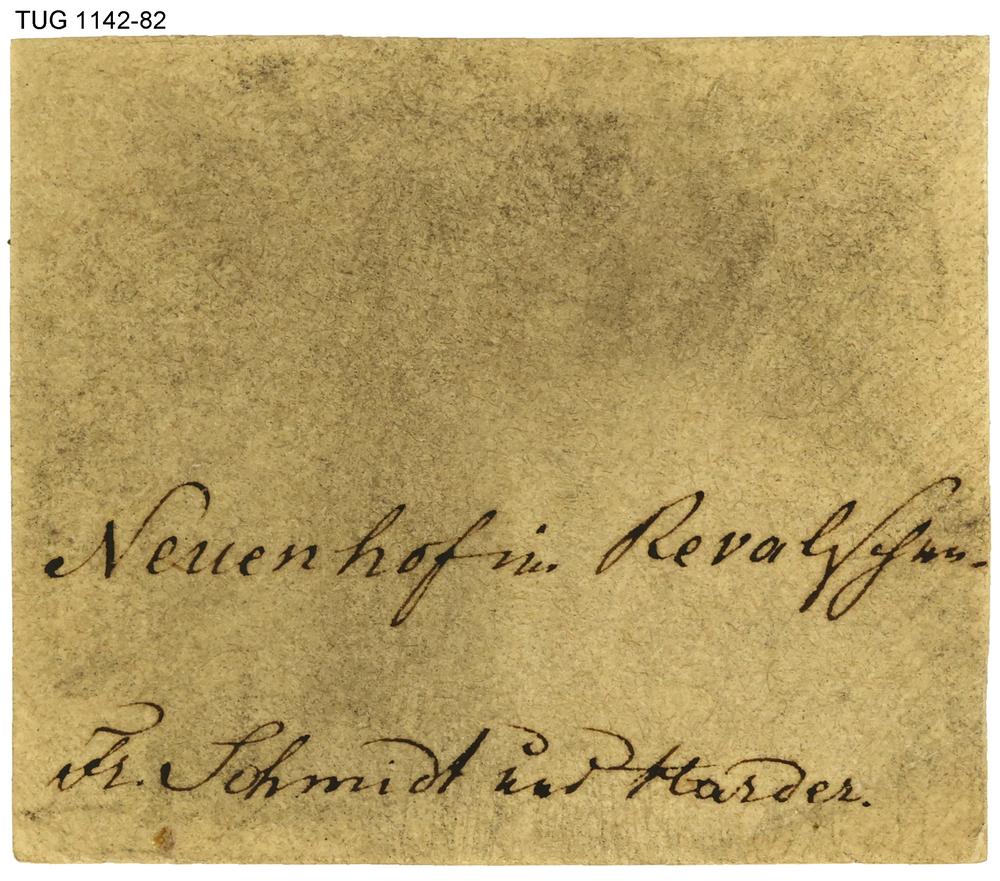 TUG 1142-82
Neuenhof im Revalschen.
Fr. Schmidt und Harder.